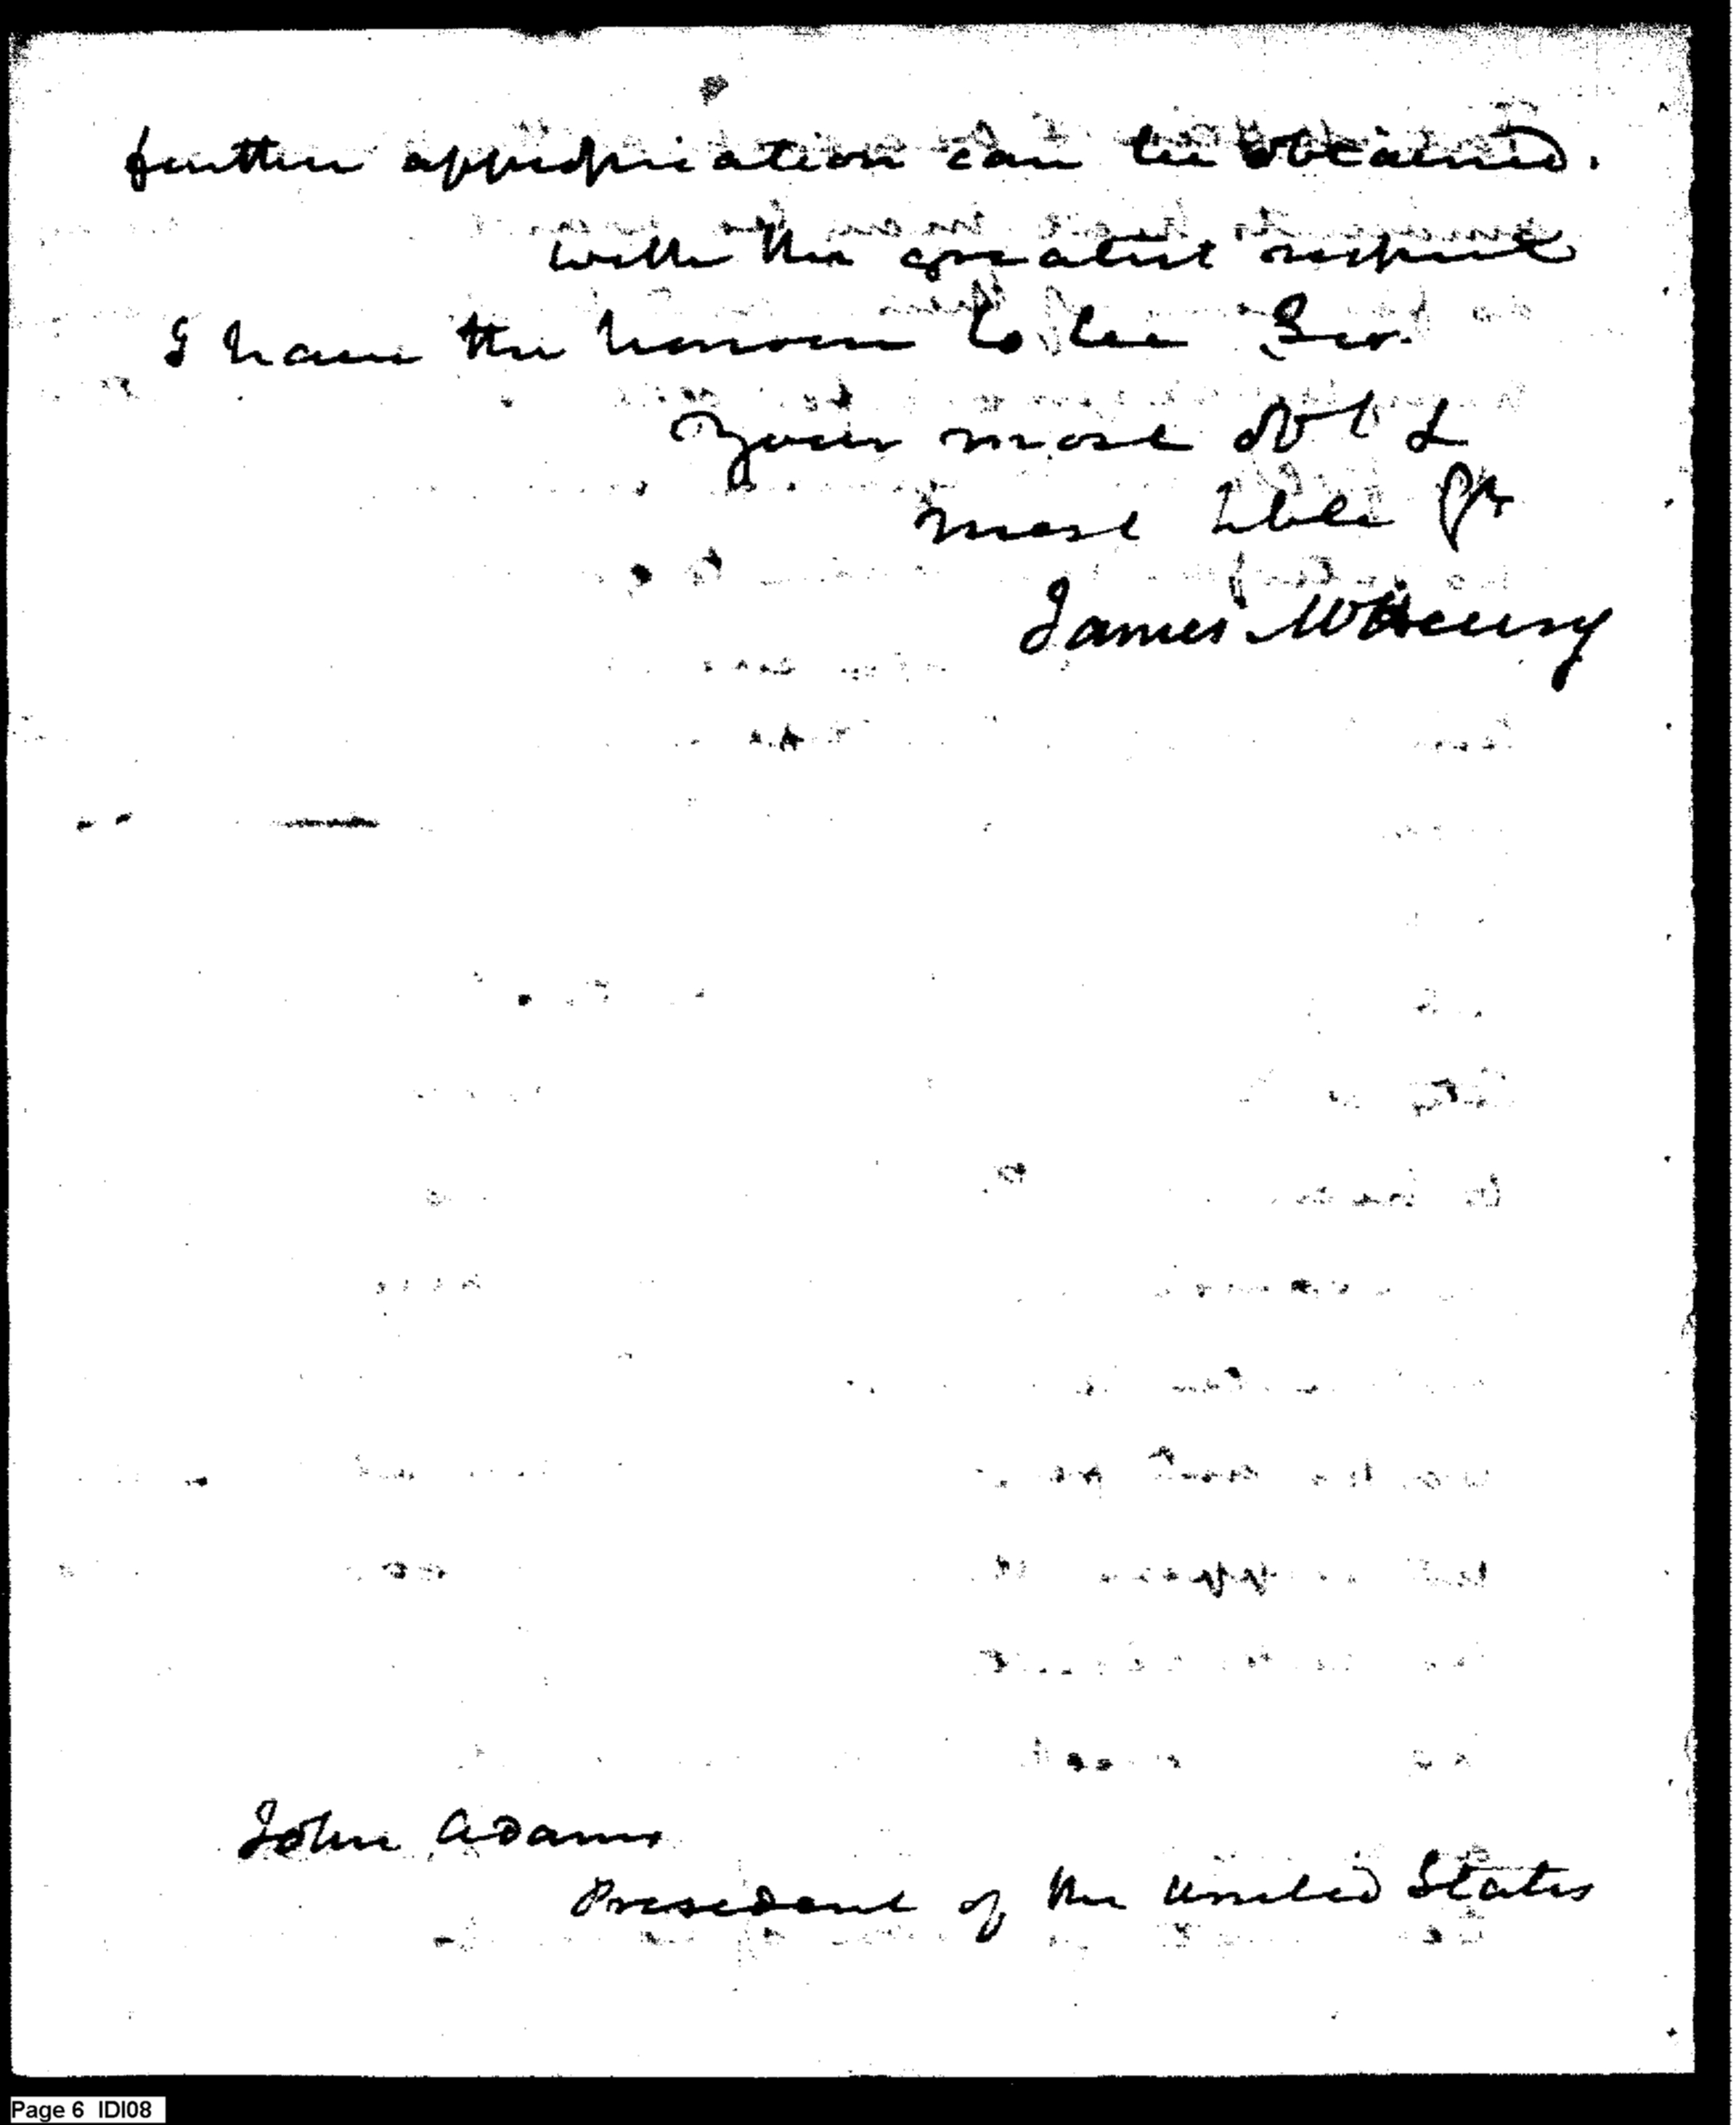 further appropriation can be obtained.
with the greatest respect
I have the honour to be Sir.
Your most obt &
most hble St
James McHenry
John Adams
President of the United States
Page 6 IDI08